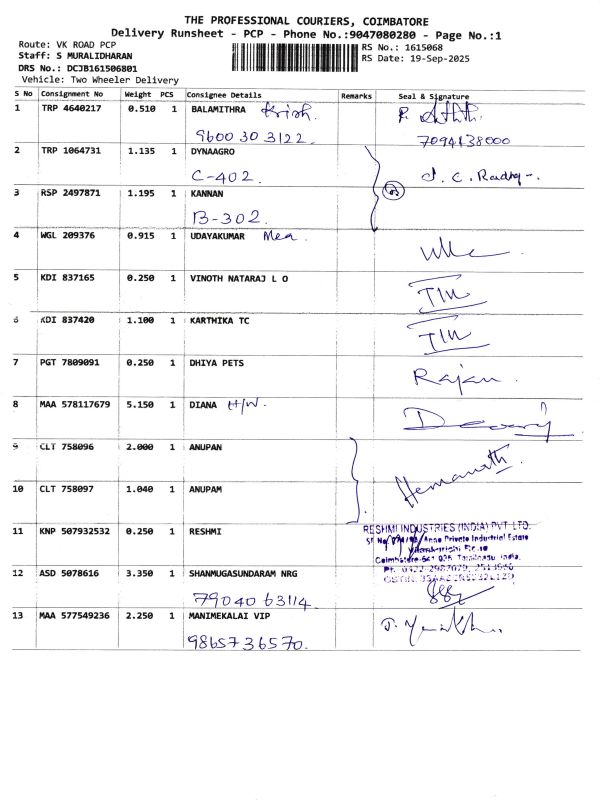 THE PROFESSIONAL COURIERS, COIMBATORE
Delivery Runsheet - PCP - Phone No.:9047080280 - Page No.:1
Route: VK ROAD PCP RS No.: 1615068
Staff: S MURALIDHARAN RS Date: 19-Sep-2025
DRS No.: DCJB161506801
Vehicle: Two Wheeler Delivery
S No Consignment No Weight PCS Consignee Details Remarks Seal & Signature
1 TRP 4640217 0.510 1 BALAMITHRA Krish.
9600 30 3122. 7094138000
2 TRP 1064731 1.135 1 DYNAAGRO
C-402.
3 RSP 2497871 1.195 1 KANNAN
B-302.
4 WGL 209376 0.915 1 UDAYAKUMAR
5 KDI 837165 0.250 1 VINOTH NATARAJ L O
6 KDI 837420 1.100 1 KARTHIKA TC
7 PGT 7809091 0.250 1 DHIYA PETS
Rajan.
8 MAA 578117679 5.150 1 DIANA H/W.
9 CLT 758096 2.000 1 ANUPAN
Hemanath.
10 CLT 758097 1.040 1 ANUPAM
11 KNP 507932532 0.250 1 RESHMI RESHMI INDUSTRIES (INDIA) PVT. LTD.
Anna Private Industrial Estate
Coimbatore-641 035. Tamilnadu, India.
12 ASD 5078616 3.350 1 SHANMUGASUNDARAM NRG
79040 63114.
13 MAA 577549236 2.250 1 MANIMEKALAI VIP
9865736570.